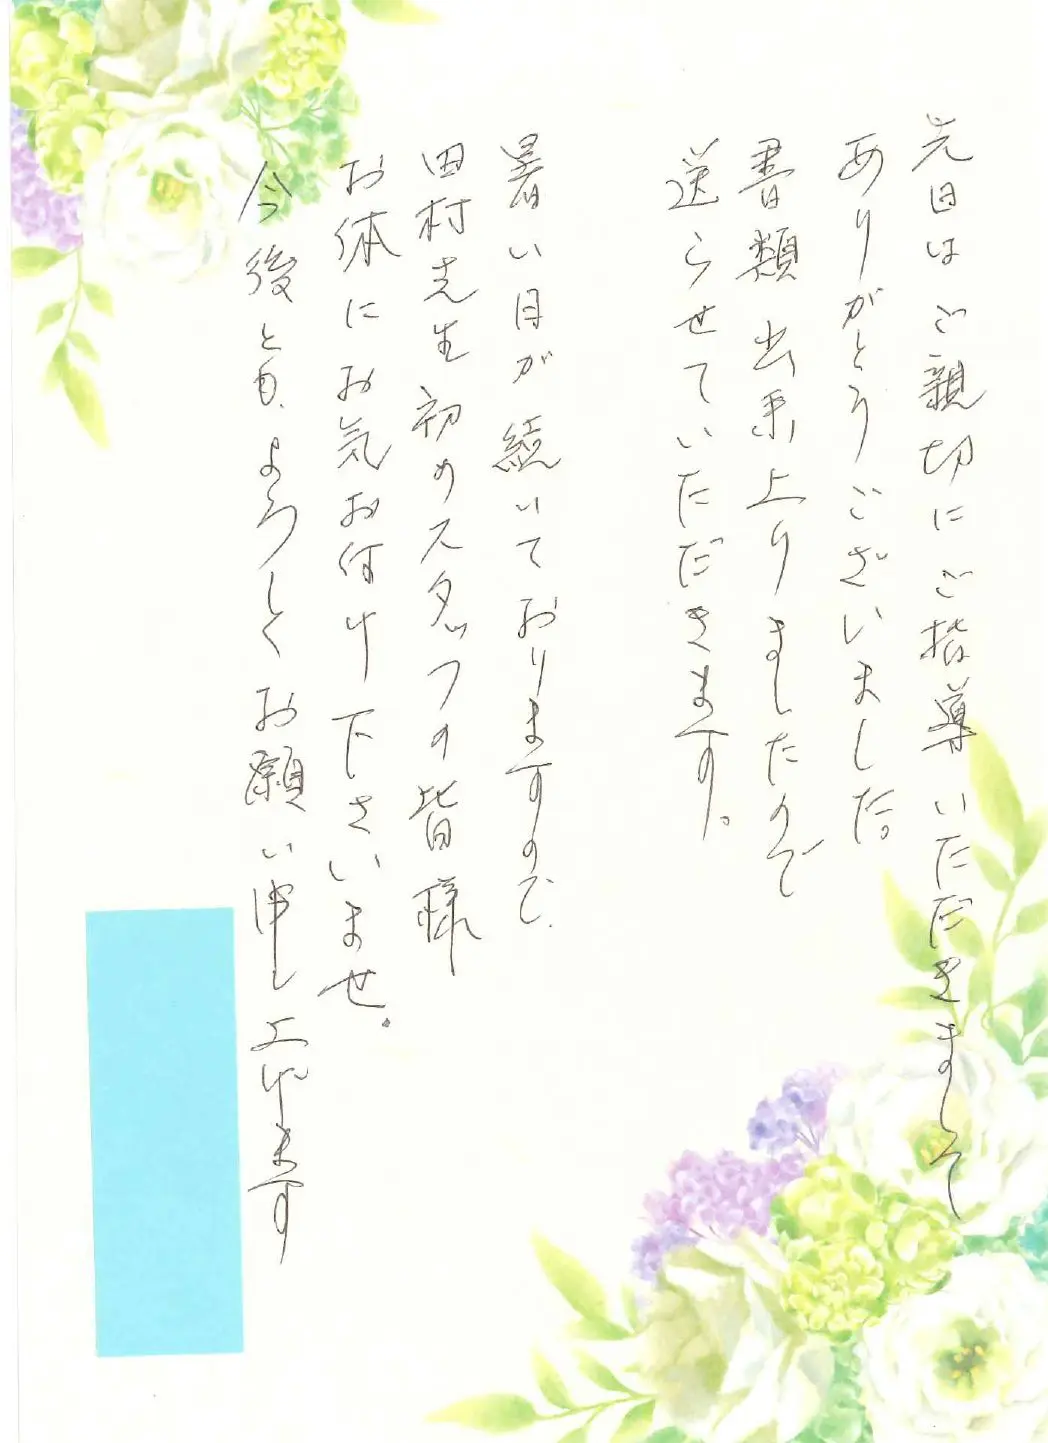 先日はご親切にご指導いただきまして
ありがとうございました。
書類出来上りましたので
送らせていただきます。
暑い日が続いておりますので、
田村先生初めスタッフの皆様
お体にお気お付け下さいませ。
今後とも、よろしくお願い申し上げます